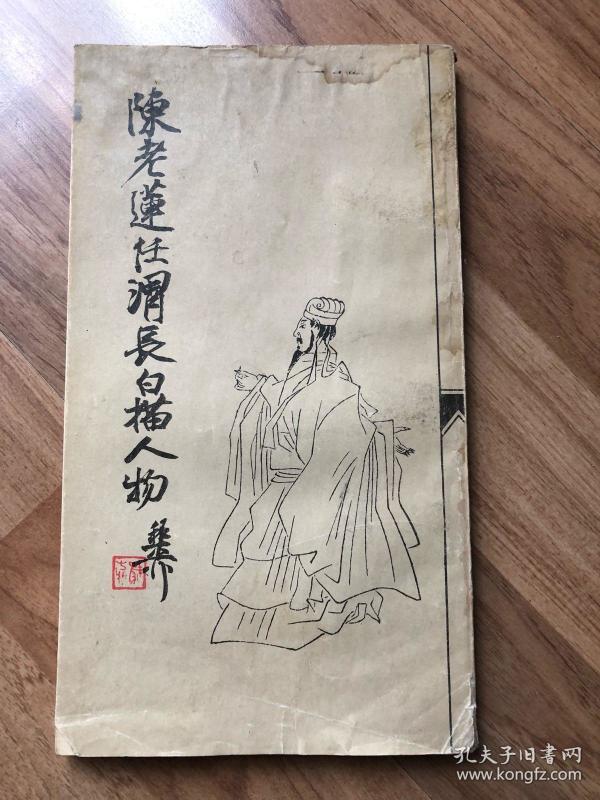 陳老蓮任渭長白描人物
孔夫子旧書网
www.kongfz.com